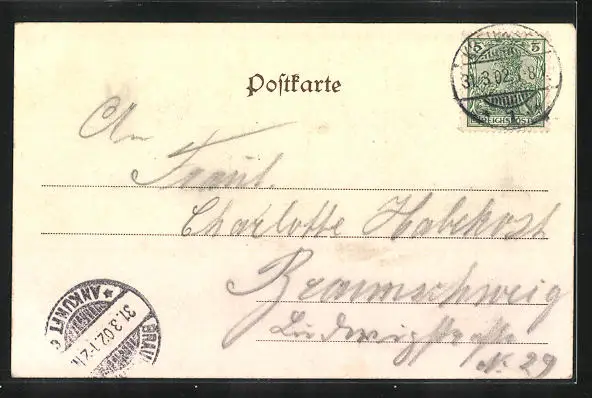 Postkarte
5 5
31.3.02.
REICHSPOST
An
Fräul.
Charlotte Habekost
Braunschweig
Ludwigstraße
No. 29
BRAU
31.3.02.1-2N.
* ANKUNFT